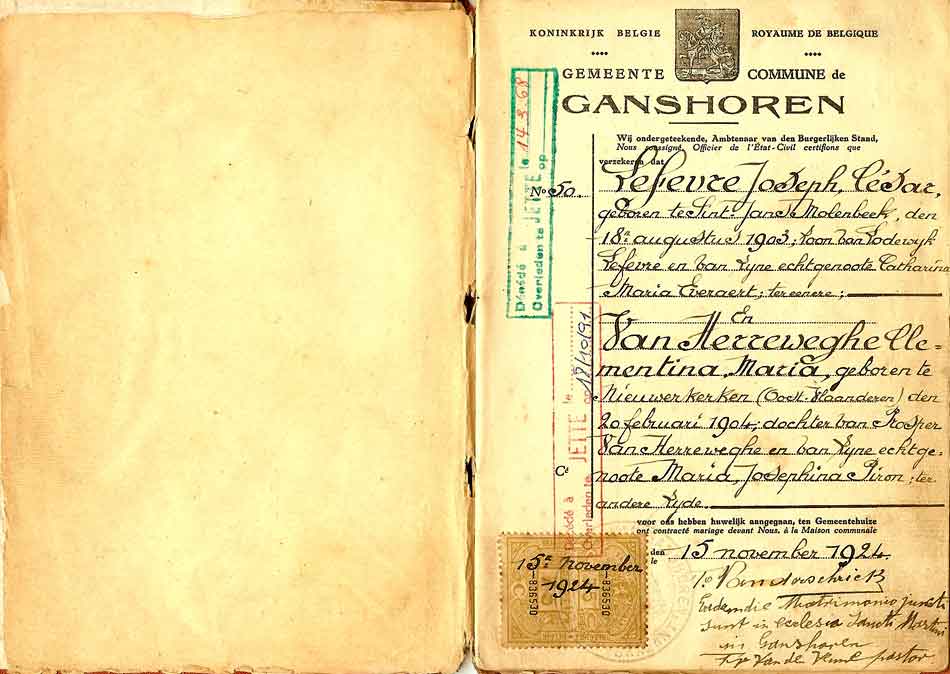 KONINKRIJK BELGIE ROYAUME DE BELGIQUE
GEMEENTE COMMUNE de
GANSHOREN
Wij ondergeteekende, Ambtenaar van den Burgerlijken Stand,
Nous soussigné, Officier de l'État-Civil certifions que
verzekeren dat
No 50. Lefevre Joseph, César,
geboren te Sint-Jans Molenbeek, den
18n augustus 1903; Zoon van Lodewyk
Lefevre en van Zyne echtgenoote Catharina
Maria Everaert; ter eenere;
En
Van Herreweghe Cle-
mentina, Maria, geboren te
Nieuwerkerken (Oost-Vlaanderen) den
20 februari 1904; dochter van Prosper
Van Herreweghe en van Zyne echtge-
noote Maria, Josephina Piron; ter
andere Zyde.
Ct
voor ons hebben huwelijk aangegaan, ten Gemeentehuize
ont contracté mariage devant Nous, à la Maison communale
den
le 15 november 1924.
Eodem die Matrimonio juncti
sunt in ecclesia Sancti Martini
in Ganshoren
Van de pastor
Décédé à JETTE le 14.3.68
Overleden te op
Décédé à JETTE le
Overleden te op 12/10/91
15n November
1924
836530
836530